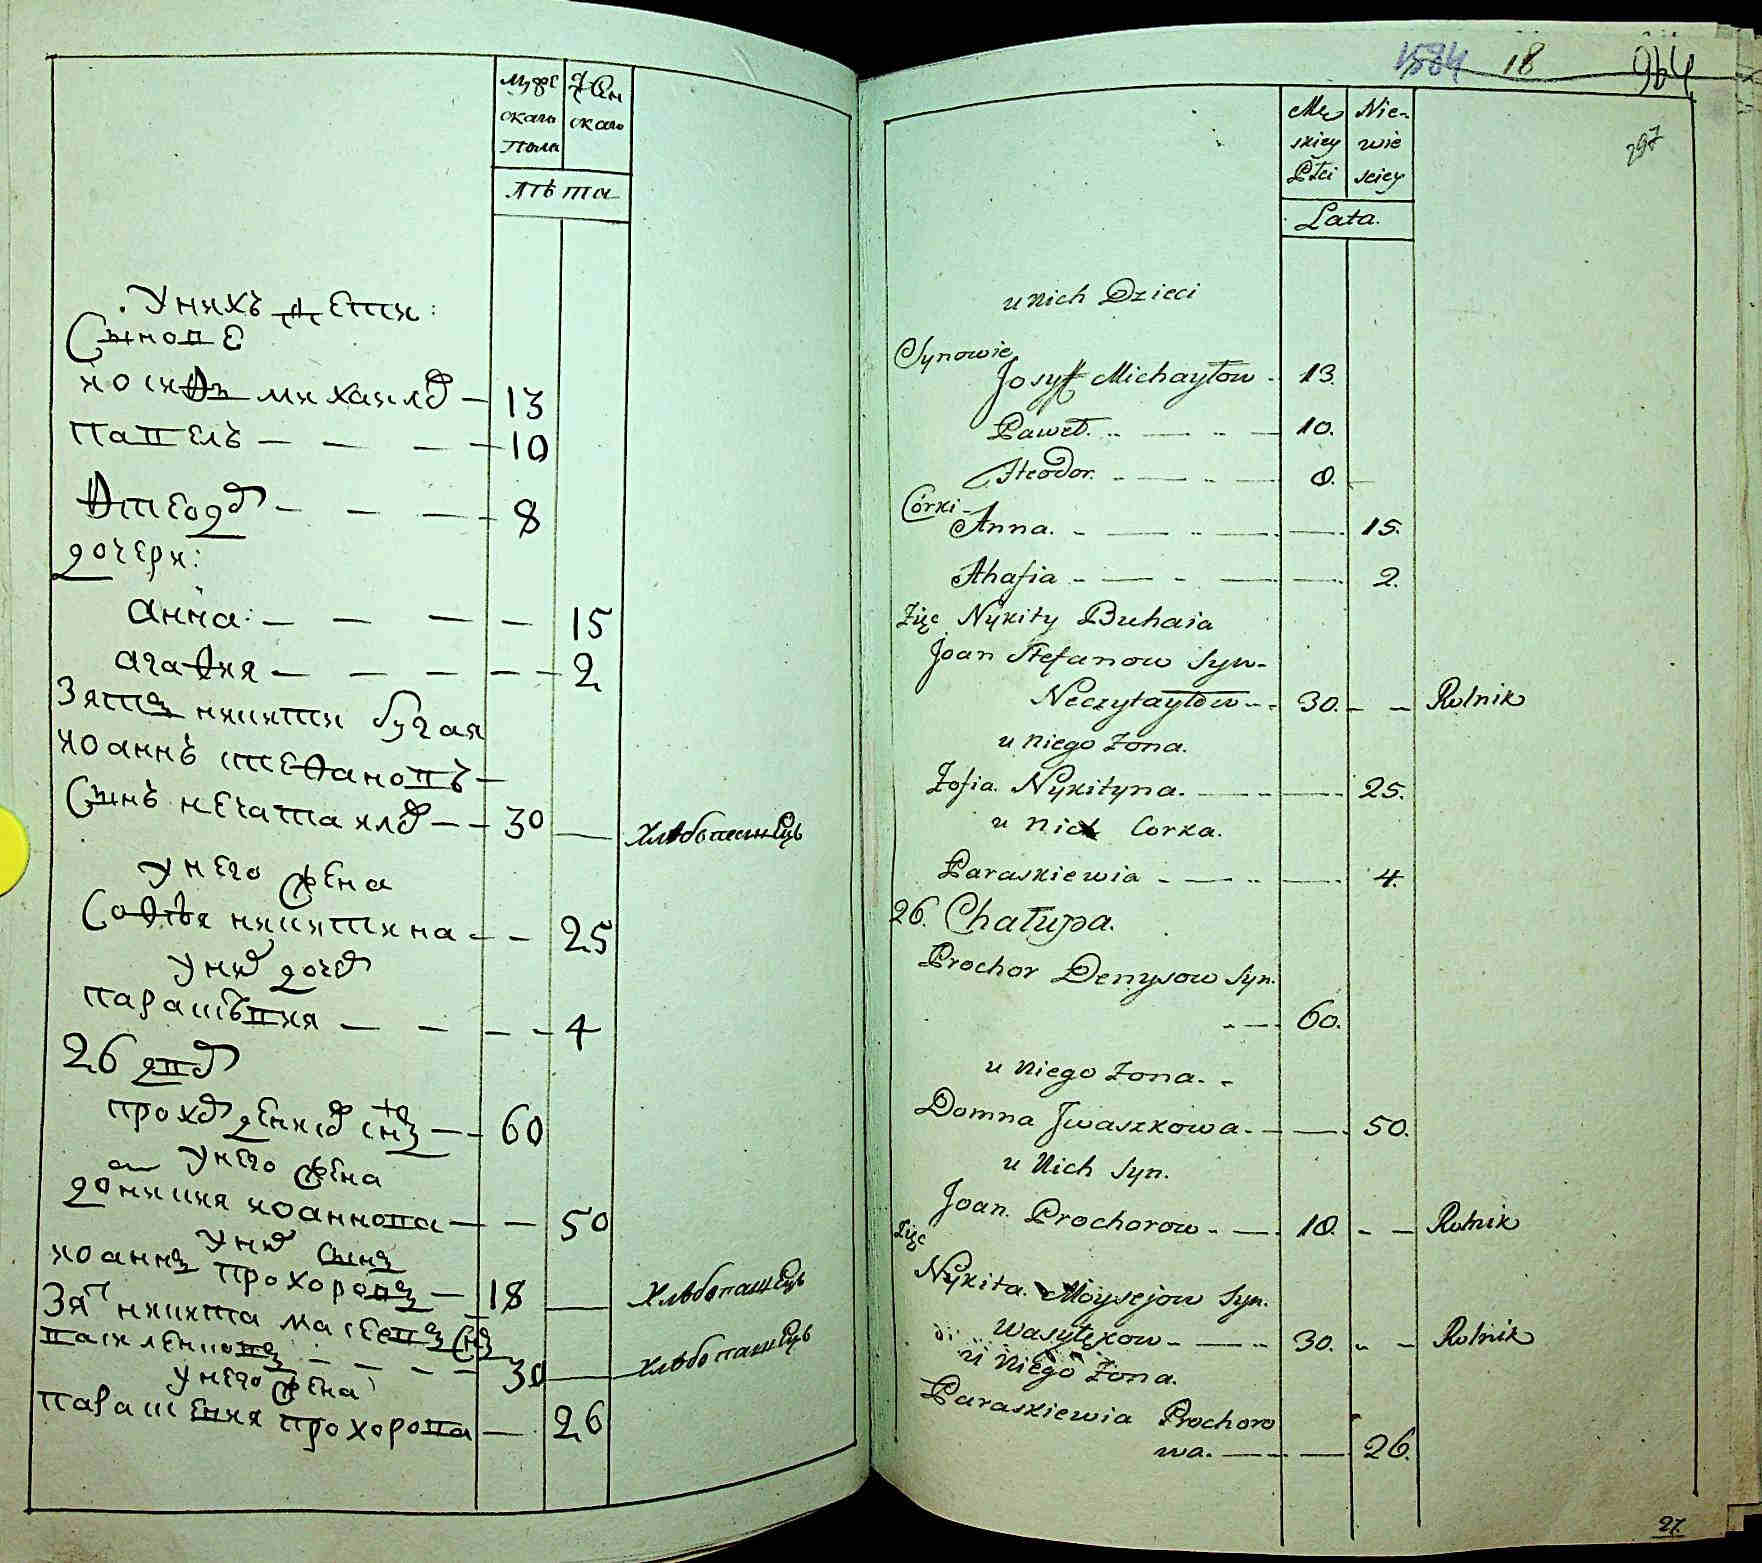 мужескаго пола
женскаго
лѣта
У нихъ дети:
Сынове
иосифъ михаилов — 13
павелъ — — — 10
Фтеодор — — — 8
дочери:
анна: — — — — 15
агафия — — — — — 2
Зять никити бугая
иоаннъ стефановъ —
Сынъ нечатаилов — — 30 — хлѣбопашецъ
У него жена
Софѣя никитина — — 25
У них дочь
парасѣвия — — — — 4
26 двор
прохор денисов снъ — — 60
У него жена
домникия иоаннова — — 50
У них сынъ
иоаннъ прохоровъ — 18 — Хлѣбопашецъ
Зят никита масеевъ снъ
василенковъ — — — — 30 — хлѣбопашецъ
У него жена
парасевия прохорова — 26
1584 18 964
297
Męskiey Płci
Niewieściey
Lata.
u nich Dzieci
Synowie
Josyf Michayłow - 13.
Paweł. - — - — 10.
Fteodor. - — - — 8. —
Córki -
Anna. - — - — — 15.
Ahafia - — - — — 2.
Zięc Nykity Buhaia
Joan Stefanow Syn-
Neczytayłow - - 30. — — Rolnik
u niego Zona.
Zofia Nykityna. — - — 25.
u nich Corka.
Paraskiewia - — - — 4.
26. Chałupa.
Prochor Denysow Syn.
- — 60.
u niego Zona. -
Domna Jwaszkowa. - — 50.
u Nich Syn.
Joan Prochorow - — 18. - — Rolnik
Zięc
Nykita Moysejow Syn.
Wasylkow - — - 30. - — Rolnik
u niego Zona.
Paraskiewia Prochoro
wa. — - — 26.
27.